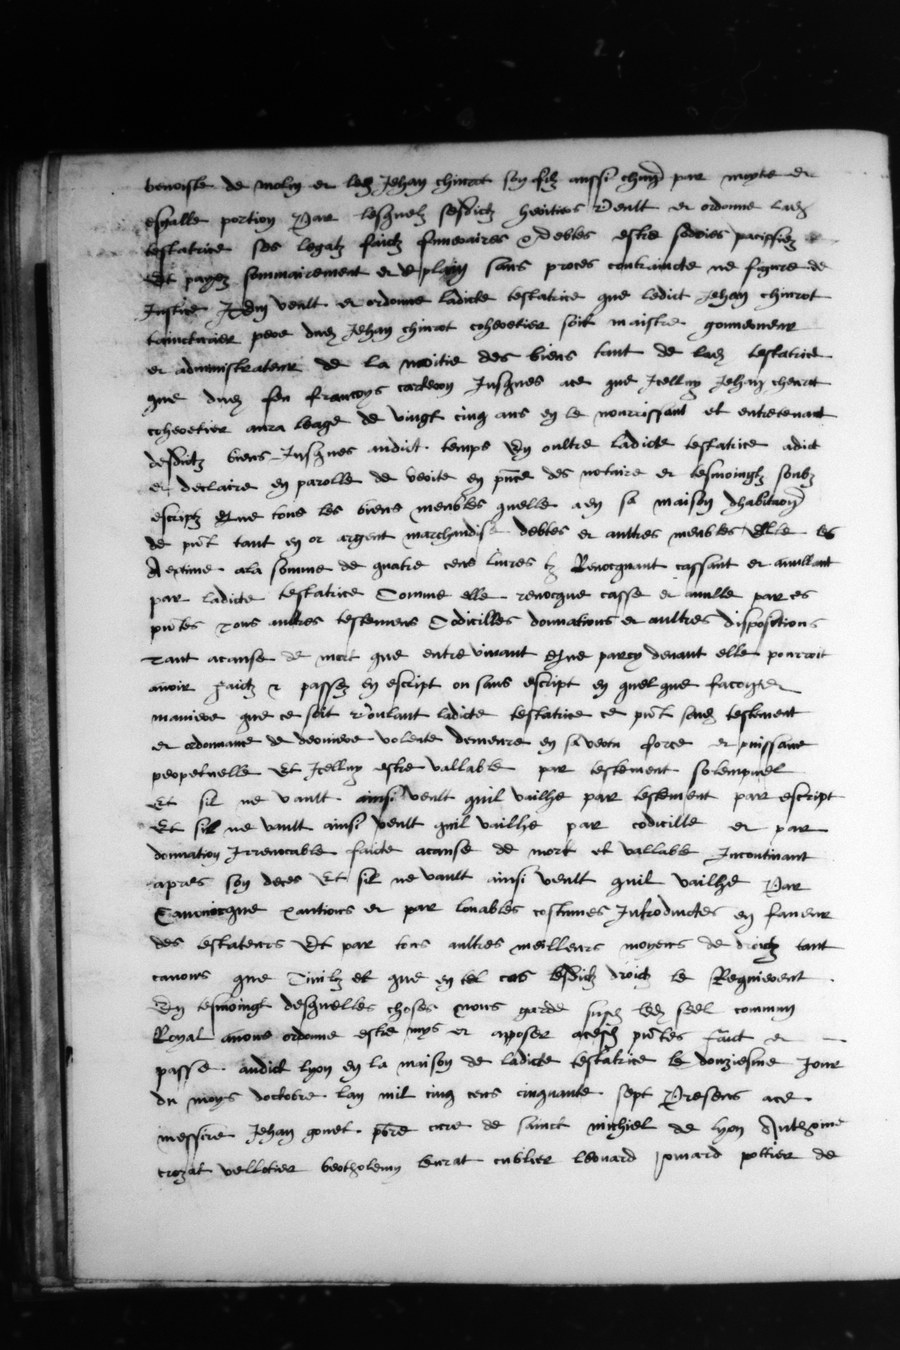 benoiste de molin et led Jehan chinrot son filz aussi chun par moytie et
esgalle portion Par lesquelz sesdictz heritiers Veult et ordonne lad
testatrice ses legatz faictz funeraires & debtes estre paciffiez
Et payez sommairement et de plain sans proces contraincte ne figure de
Justice Item veult et ordonne ladicte testatrice que ledict Jehan chinrot
taincturier pere dud Jehan chinrot coheretier soit maistre gouverneur
et administrateur de la moitie des biens tant de lad testatrice
que dud feu francoys carderon Jusques ace que Jcelluy Jehan chinrot
coheretier aura leage de vingt cinq ans en le nourrissant et entretenant
desdictz biens Jusques audict temps En oultre ladicte testatrice adict
et declaire en parolle de verite en pnce des notaire et tesmoingtz soubz
escriptz Que tous les biens meubles quelle a en sa maison dhabitaon
de pnt tant en or argent marchandise debtes et aultres meubles Elle les
A extime ala somme de quatre cens livres tz Revocquant cassant et anullant
par ladicte testatrice Comme elle revocque casse et anulle par ces
pntes Tous aultres testemens Codicilles donnations et aultres dispositions
Tant acause de mort que entre vivant Que parcy devant elle pourroit
avoir faictz & passez en escript ou sans escript en quelque facon et
maniere que ce soit Voulant ladicte testatrice ce pnt sond testement
et ordonnance de derniere volente demeure en sa vertu force et puissance
perpetuelle Et Jcelluy estre vallable par testement solempnel
Et sil ne vault ainsi veult quil vailhe par testement par escript
Et sil ne vault ainsi veult quil vailhe par codicille et par
donnation Irrevocable faicte acause de mort et vallable Incontinant
apres son deces Et sil ne vault ainsi veult quil vailhe Par
et par louables costumes Introductes en faveur
des testateurs Et par tous aultres meilleurs moyens de droictz tant
canons que Civilz et que en tel cas lesdictz droictz le Requierent
En tesmoingt desquelles choses nous garde susd led seel commun
Royal avons ordonne estre mys et apposer acesd pntes faict et
passe audict lyon en la maison de ladicte testatrice le douziesme Jour
du moys doctobre lan mil cinq cens cinquante sept Presens ace
messire Jehan gonet pbre cure de sainct michiel de lyon Anthoine
crozat velletier bertholemy burat cublier leonard pottier de